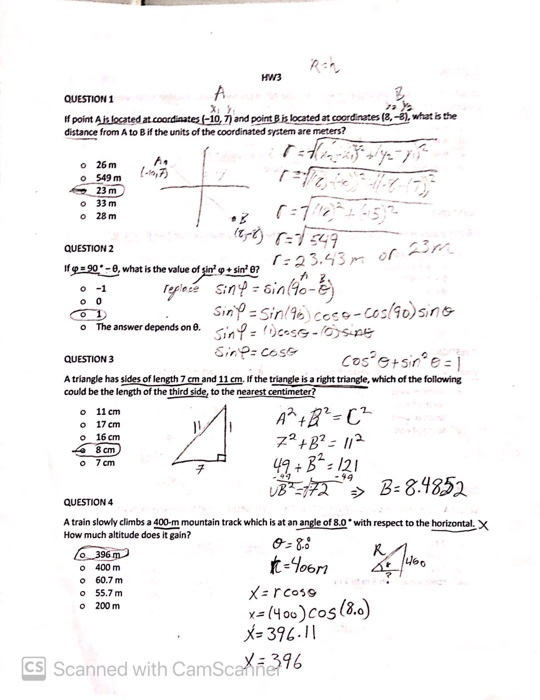 R=h
HW3
QUESTION 1
A
B
x₁ y₁
x₂ y₂
If point A is located at coordinates (−10, 7) and point B is located at coordinates (8, −8), what is the
distance from A to B if the units of the coordinated system are meters?
26 m
549 m
23 m
33 m
28 m
A
(-10,7)
B
(8,-8)
r=√(x₂-x₁)²+(y₂-y₁)²
r=√(18)²+(-15)²
r=√549
r=23.43m or 23m
QUESTION 2
If φ = 90° − θ, what is the value of sin² φ + sin² θ?
−1
0
1
The answer depends on θ.
replace
A B
sinφ = sin(90-θ)
sinφ = sin(90) cosθ - cos(90) sinθ
sinφ = (1)cosθ - (0)sinθ
sinφ = cosθ
cos²θ + sin²θ = 1
QUESTION 3
A triangle has sides of length 7 cm and 11 cm. If the triangle is a right triangle, which of the following
could be the length of the third side, to the nearest centimeter?
11 cm
17 cm
16 cm
8 cm
7 cm
11
7
A²+B²=C²
7²+B²=11²
49+B²=121
-49 -49
√B²=√72 => B=8.4852
QUESTION 4
A train slowly climbs a 400-m mountain track which is at an angle of 8.0 ° with respect to the horizontal. X
How much altitude does it gain?
396 m
400 m
60.7 m
55.7 m
200 m
θ=8.0
R
?
x=rcosθ
x=(400)cos(8.0)
x=396.11
x=396
CS Scanned with CamScanner